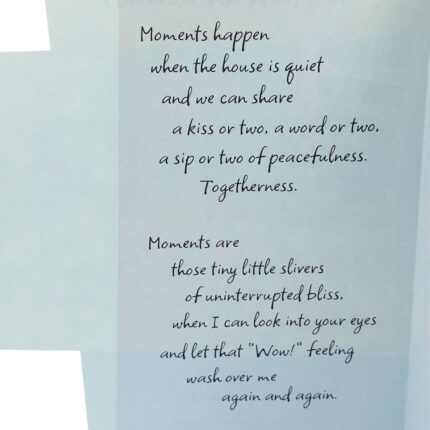 Moments happen
when the house is quiet
and we can share
a kiss or two, a word or two,
a sip or two of peacefulness.
Togetherness.
Moments are
those tiny little slivers
of uninterrupted bliss,
when I can look into your eyes
and let that "Wow!" feeling
wash over me
again and again.